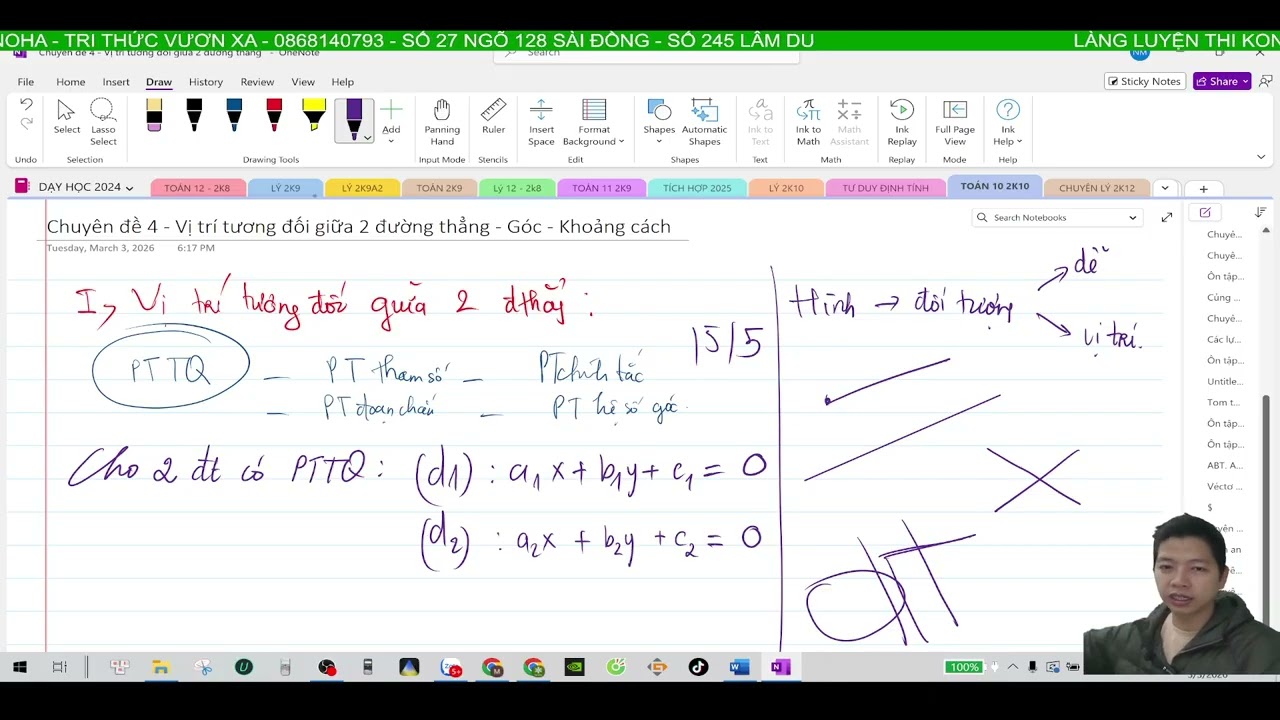 NOHA - TRI THỨC VƯƠN XA - 0868140793 - SỐ 27 NGÕ 128 SÀI ĐỒNG - SỐ 245 LÂM DU
LÀNG LUYỆN THI KON
Chuyên đề 4 - Vị trí tương đối giữa 2 đường thẳng - OneNote
Search
NM
File Home Insert Draw History Review View Help
Sticky Notes Share
Select Lasso Select Add Panning Hand Ruler Insert Space Format Background Shapes Automatic Shapes Ink to Text Ink to Math Math Assistant Ink Replay Full Page View Ink Help
Undo Selection Drawing Tools Input Mode Stencils Edit Shapes Text Math Replay Mode Help
DẠY HỌC 2024 TOÁN 12 - 2K8 LÝ 2K9 LÝ 2K9A2 TOÁN 2K9 Lý 12 - 2k8 TOÁN 11 2K9 TÍCH HỢP 2025 LÝ 2K10 TƯ DUY ĐỊNH TÍNH TOÁN 10 2K10 CHUYÊN LÝ 2K12
Chuyên đề 4 - Vị trí tương đối giữa 2 đường thẳng - Góc - Khoảng cách
Search Notebooks
Tuesday, March 3, 2026 6:17 PM
I, Vị trí tương đối giữa 2 đthẳng :
PTTQ
– PT tham số – PT chính tắc
– PT đoạn chắn – PT hệ số góc.
15/5
Cho 2 đt có PTTQ : (d1) : a1x + b1y + c1 = 0
(d2) : a2x + b2y + c2 = 0
Hình → đối tượng
dễ
vị trí.
Chuyê...
Chuyê...
Ôn tập...
Củng ...
Chuyê...
Các lự...
Ôn tập...
Untitle...
Tom t...
Ôn tập...
Ôn tập...
ABT. A...
Véctơ ...
$
100%